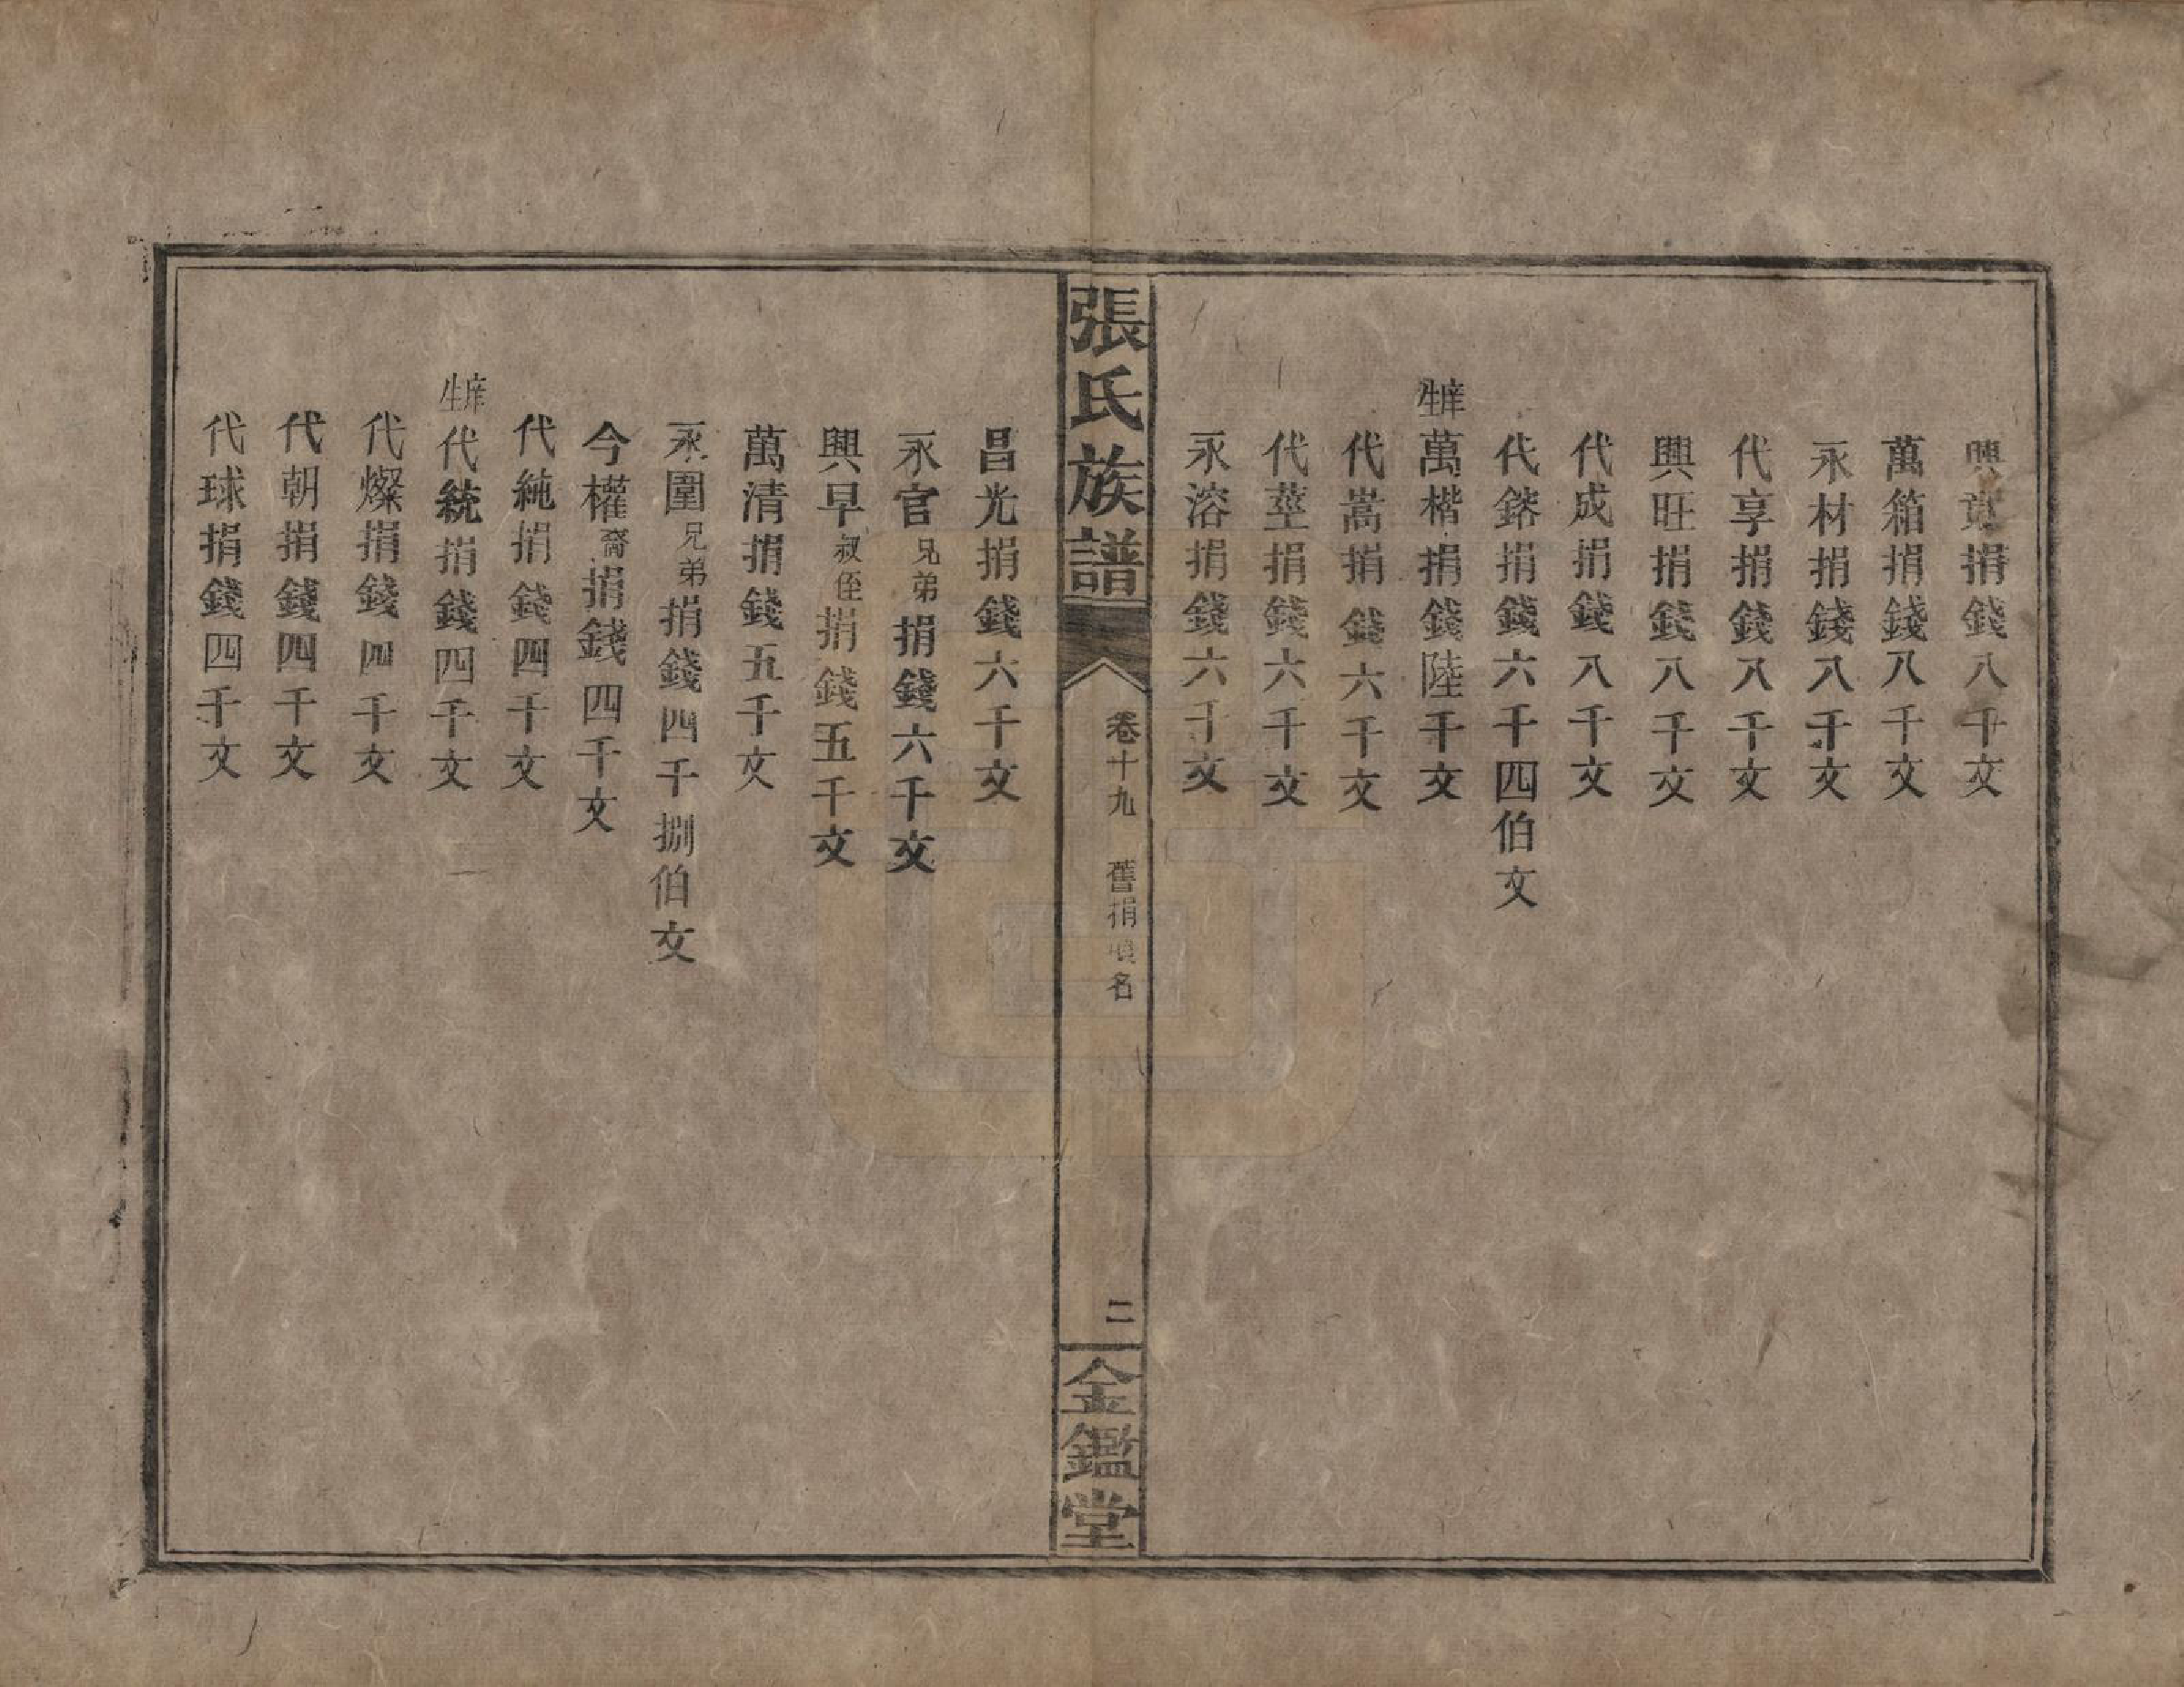 興捐錢八千文
萬箱捐錢八千文
永材捐錢八千文
代享捐錢八千文
興旺捐錢八千文
代成捐錢八千文
代鎔捐錢六千四伯文
庠生萬楷捐錢陸千文
代嵩捐錢六千文
代莖捐錢六千文
永溶捐錢六千文
張氏族譜
卷十九 舊捐名
二
金鑑堂
昌光捐錢六千文
永官兄弟捐錢六千文
興早叔侄捐錢五千文
萬清捐錢五千文
永圍兄弟捐錢四千捌伯文
今權裔捐錢四千文
代純捐錢四千文
庠生代統捐錢四千文
代燦捐錢四千文
代朝捐錢四千文
代球捐錢四千文